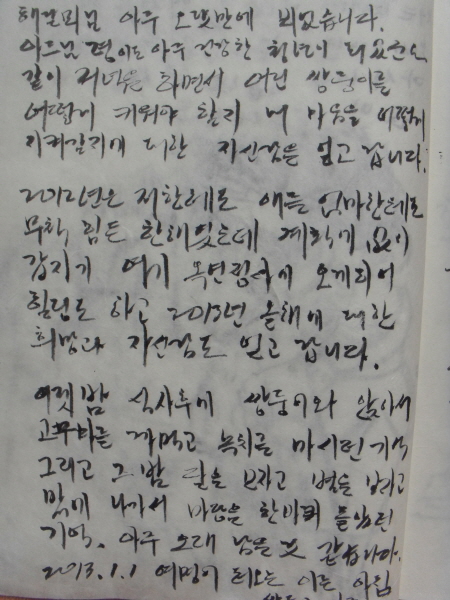 해먼리님 아주 오랫만에 뵈었습니다.
아드님 평이도 아주 건강한 청년이 되었군요
같이 저녁을 하면서 어린 쌍둥이를
어떻게 키워야 할지 내 마음을 어떻게
지켜갈지에 대한 자신감을 얻고 갑니다.
2012년은 저한테도 애들 엄마한테도
무척 힘든 한해였는데 계획에 없이
갑자기 여기 에 오게되어
힐링도 하고 2013년 올해에 대한
희망과 자신감도 얻고 갑니다.
어젯밤 식사후에 쌍둥이와 앉아서
고구마를 까먹고 녹차를 마시던 기억
그리고 그 밤 달을 보자고 별을 보려고
밖에 나가서 마당을 한바퀴 돌았던
기억. 아주 오래 남을 것 같습니다.
2013.1.1 여명이 터오는 이른 아침